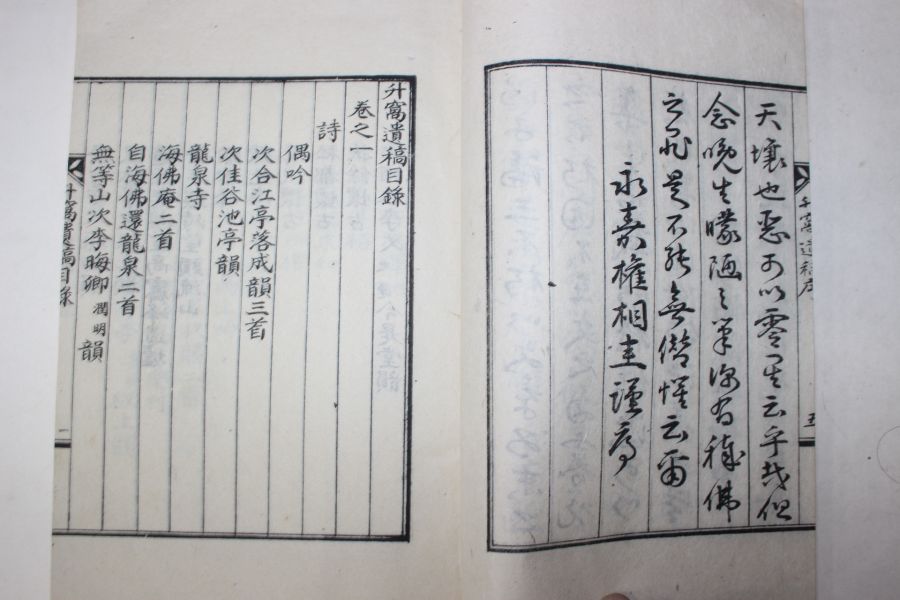 天壤也惡可以零星云乎哉但
念晩生矇陋之筆深有穢佛
之是不能無僭惟云爾
永嘉權相圭謹序
升窩遺稿序
五
升窩遺稿目錄
卷之一
詩
偶吟
次合江亭落成韻三首
次佳谷池亭韻
龍泉寺
海佛庵二首
自海佛還龍泉二首
無等山次李晦卿潤明韻
升窩遺稿目錄
一